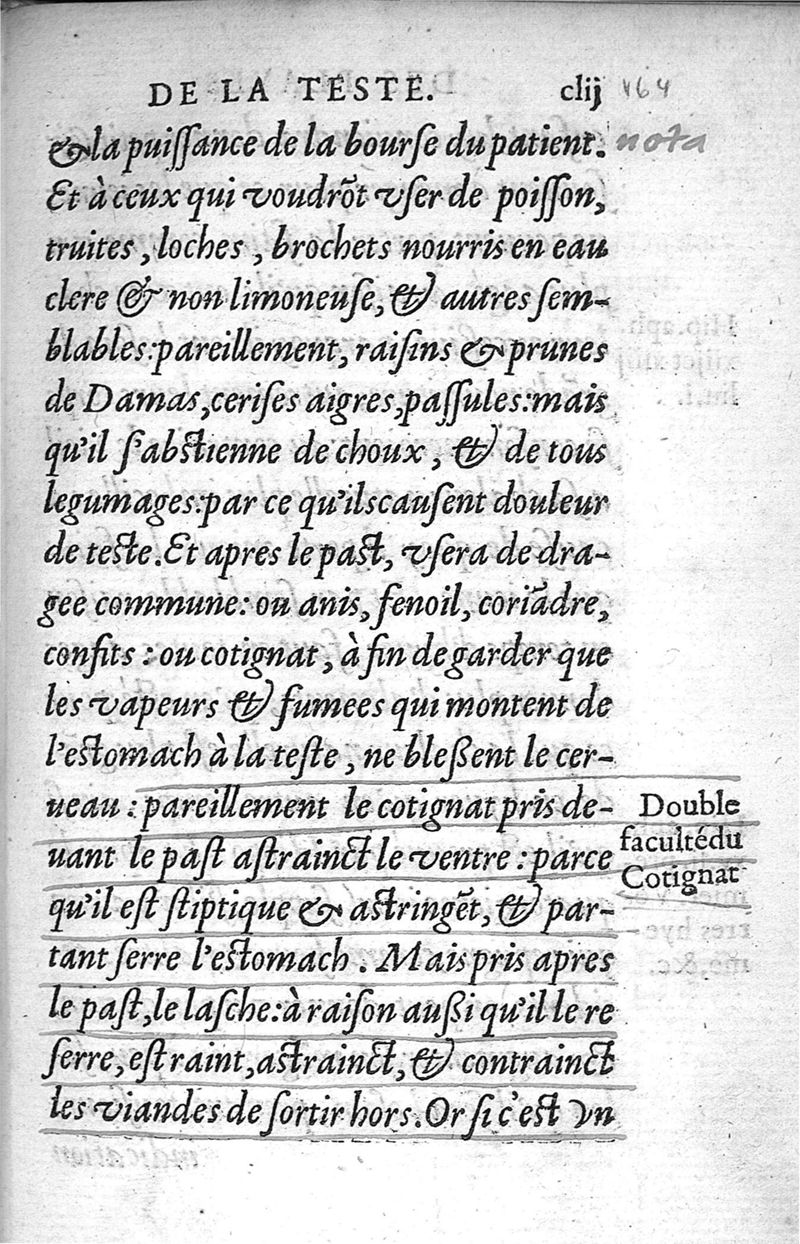 DE LA TESTE. clij 164
&la puiſſance de la bourſe du patient. nota
Et à ceux qui voudrõt vſer de poiſſon,
truites, loches, brochets nourris en eau
clere & non limoneuſe, & autres ſem-
blables: pareillement, raiſins & prunes
de Damas, ceriſes aigres, paſſules: mais
qu'il ſ'abſtienne de choux, & de tous
legumages: par ce qu'ils cauſent douleur
de teſte. Et apres le paſt, vſera de dra-
gee commune: ou anis, fenoil, coriãdre,
confits: ou cotignat, à fin de garder que
les vapeurs & fumees qui montent de
l'eſtomach à la teſte, ne bleßent le cer-
ueau: pareillement le cotignat pris de-
uant le paſt aſtrainct le ventre: parce
qu'il eſt ſtiptique & aſtringẽt, & par-
tant ſerre l'eſtomach. Mais pris apres
le paſt, le laſche: à raiſon außi qu'il le re
ſerre, eſtraint, aſtrainct, & contrainct
les viandes de ſortir hors. Or ſi c'eſt vn
Double
faculté du
Cotignat